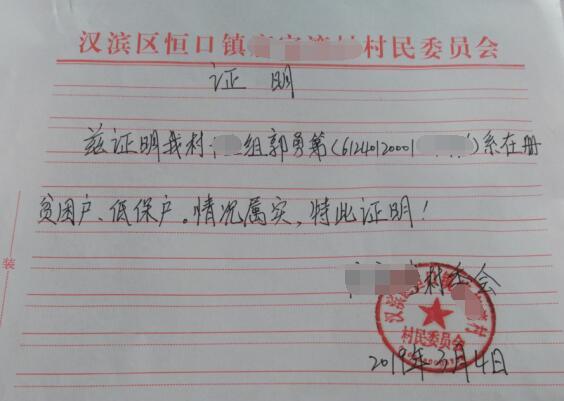 汉滨区恒口镇村民委员会
证明
兹证明我村组郭勇第(61240120001)系在册
贫困户、低保户。情况属实,特此证明!
村委会
汉滨区村
村民委员会
2019年3月4日
装